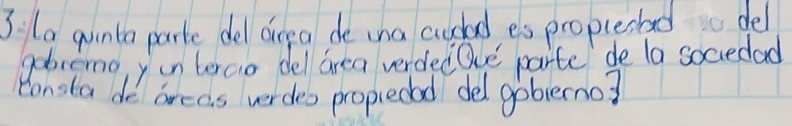 3:la quinta parte del área de una ciudad es propiedad del
gobierno, y un tercio del área verde ¿Qué parte de la sociedad
consta de áreas verdes propiedad del gobierno?